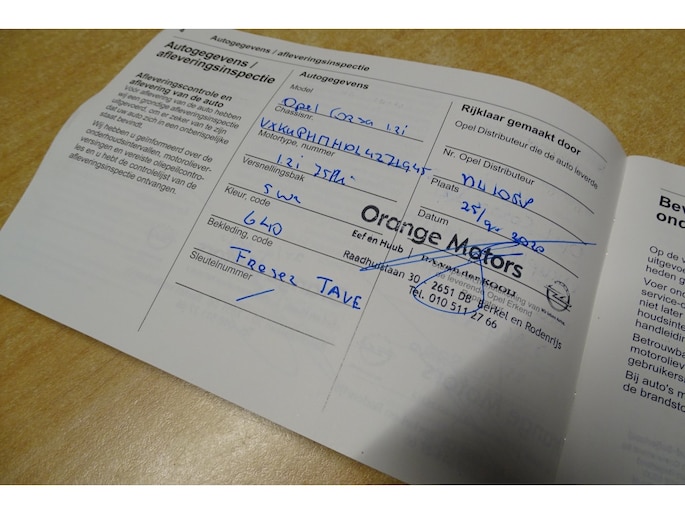 Autogegevens / afleveringsinspectie
Autogegevens /
afleveringsinspectie
Afleveringscontrole en
aflevering van de auto
Vóór aflevering van de auto hebben
wij een grondige afleveringsinspectie
uitgevoerd, om er zeker van te zijn
dat uw auto zich in een onberispelijke
staat bevindt.
Wij hebben u geïnformeerd over de
onderhoudsintervallen, motoroliever-
versingen en vereiste oliepeilcontro-
les en u hebt de controlelijst van de
afleveringsinspectie ontvangen.
Autogegevens
Model
Opel Corsa 1.2i
Chassisnr.
Motortype, nummer
1.2i
Versnellingsbak
5
Kleur, code
640
Bekleding, code
Sleutelnummer
Rijklaar gemaakt door
Opel Distributeur die de auto leverde
Nr. Opel Distributeur
Plaats
Datum
2020
Orange Motors
Eef en Huub
Raadhuislaan 30 - 2651 DB Berkel en Rodenrijs
Tel. 010 511 27 66
Op de v
uitgevoe
heden g
Voer ond
service-c
niet later
houdsinte
handleidin
Betrouwba
motoroliev
gebruikers
Bij auto's m
de brandsto